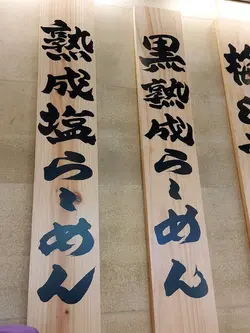 黒熟成らーめん
熟成塩らーめん